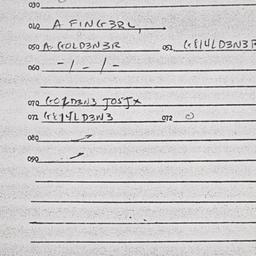 030
040 A FING3RL,
050 A. GOLD3N3R 051 GE14LD3N3R
060 -/-/-
070 GOLD3N3 JOSJX
071 GE14LD3N3 072
080
090